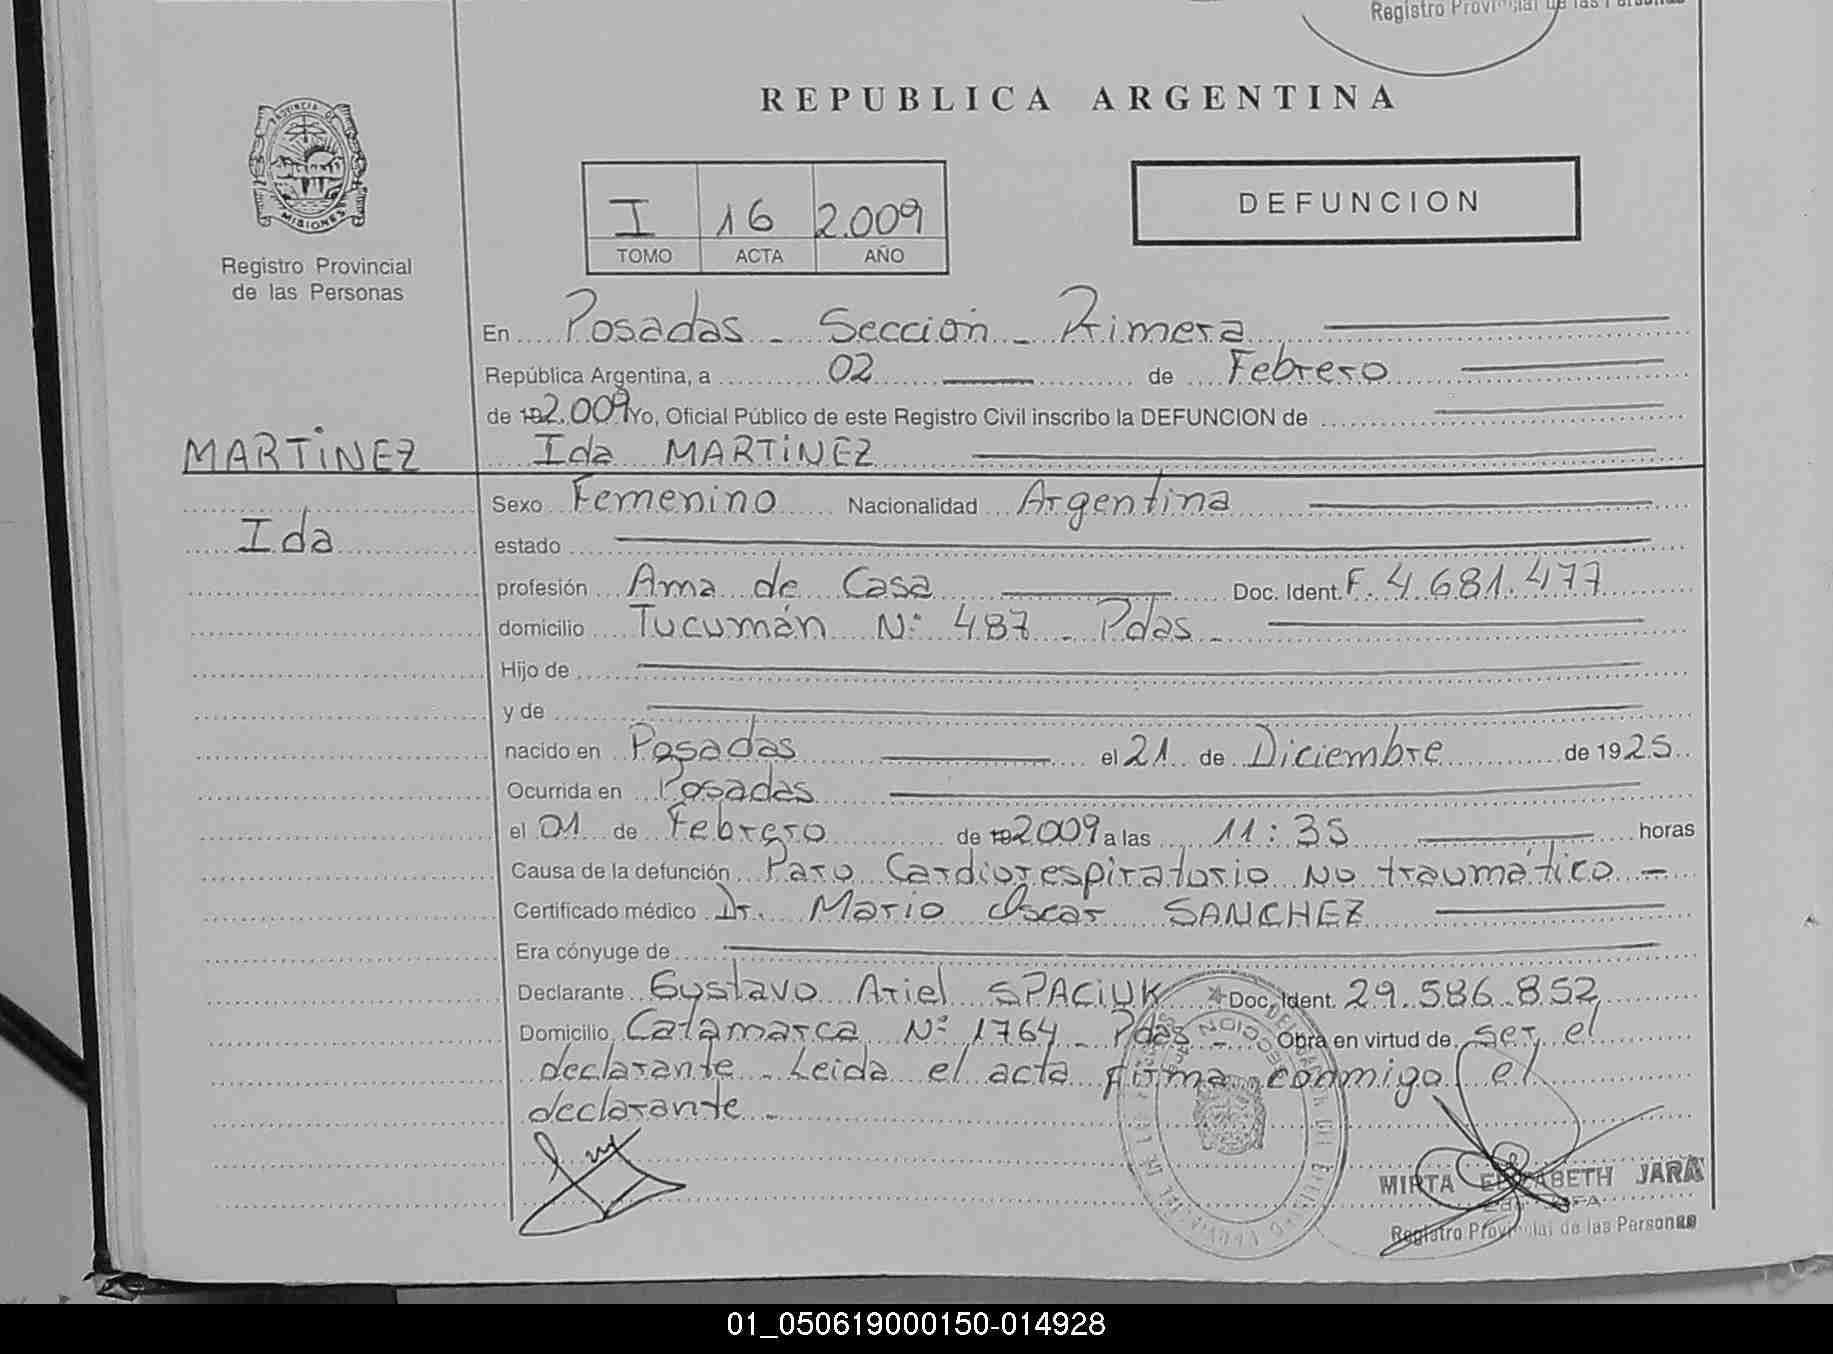 Registro Provincial de las Personas
REPUBLICA ARGENTINA
PROVINCIA DE
MISIONES
Registro Provincial
de las Personas
I 16 2.009
TOMO ACTA AÑO
DEFUNCION
En Posadas - Sección - Primera
República Argentina, a 02 de Febrero
de 19 2.009 Yo, Oficial Público de este Registro Civil inscribo la DEFUNCION de
MARTINEZ Ida MARTINEZ
Sexo Femenino Nacionalidad Argentina
Ida
estado
profesión Ama de Casa Doc. Ident. F. 4.681.477
domicilio Tucumán Nº 487 - Pdas -
Hijo de
y de
nacido en Posadas el 21 de Diciembre de 1925
Ocurrida en Posadas
el 01 de Febrero de 19 2009 a las 11:35 horas
Causa de la defunción Paro Cardiorespiratorio No traumático -
Certificado médico Dr. Mario Oscar SANCHEZ
Era cónyuge de
Declarante Gustavo Ariel SPACIUK Doc. Ident. 29.586.852
Domicilio Catamarca Nº 1764 - Pdas - Obra en virtud de ser el
declarante - Leida el acta firma conmigo el
declarante -
MIRTA ELIZABETH JARA
Registro Provincial de las Personas
01_050619000150-014928